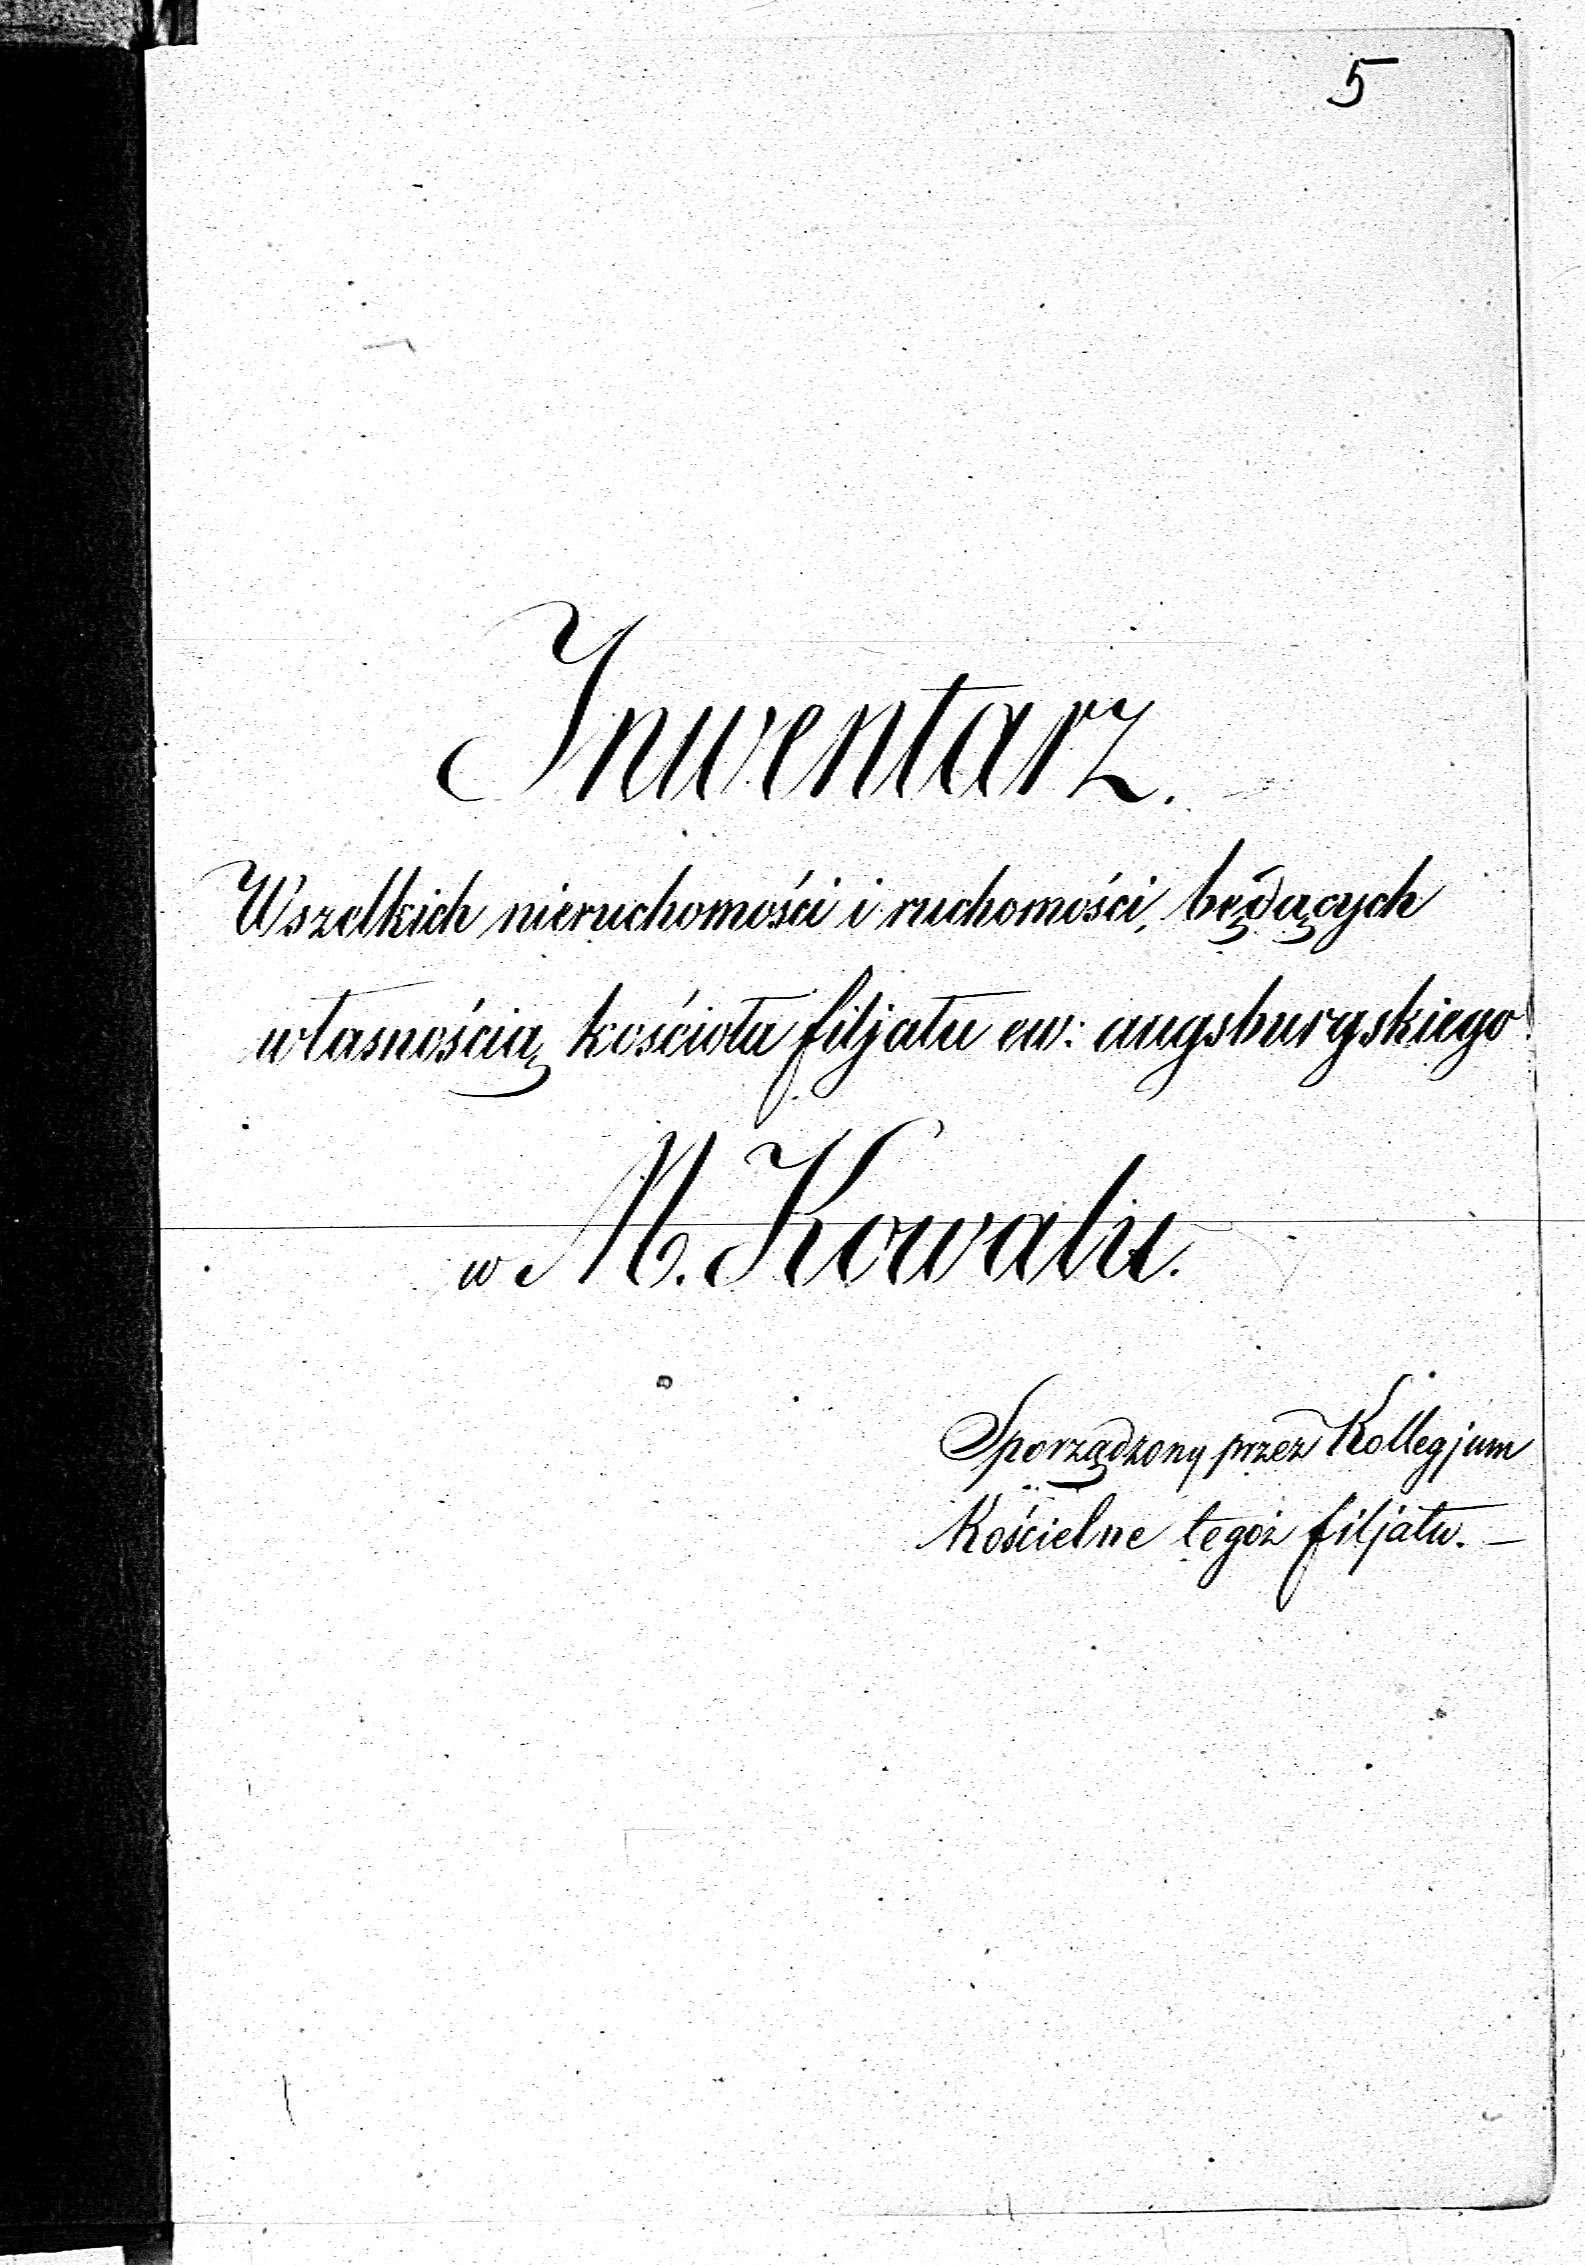 5
Inwentarz.
Wszelkich nieruchomości i ruchomości, będących
własnością kościoła filjału ew: augsburgskiego
w M. Kowalu.
Sporządzony przez Kollegjum
Kościelne tegoż filjału. —